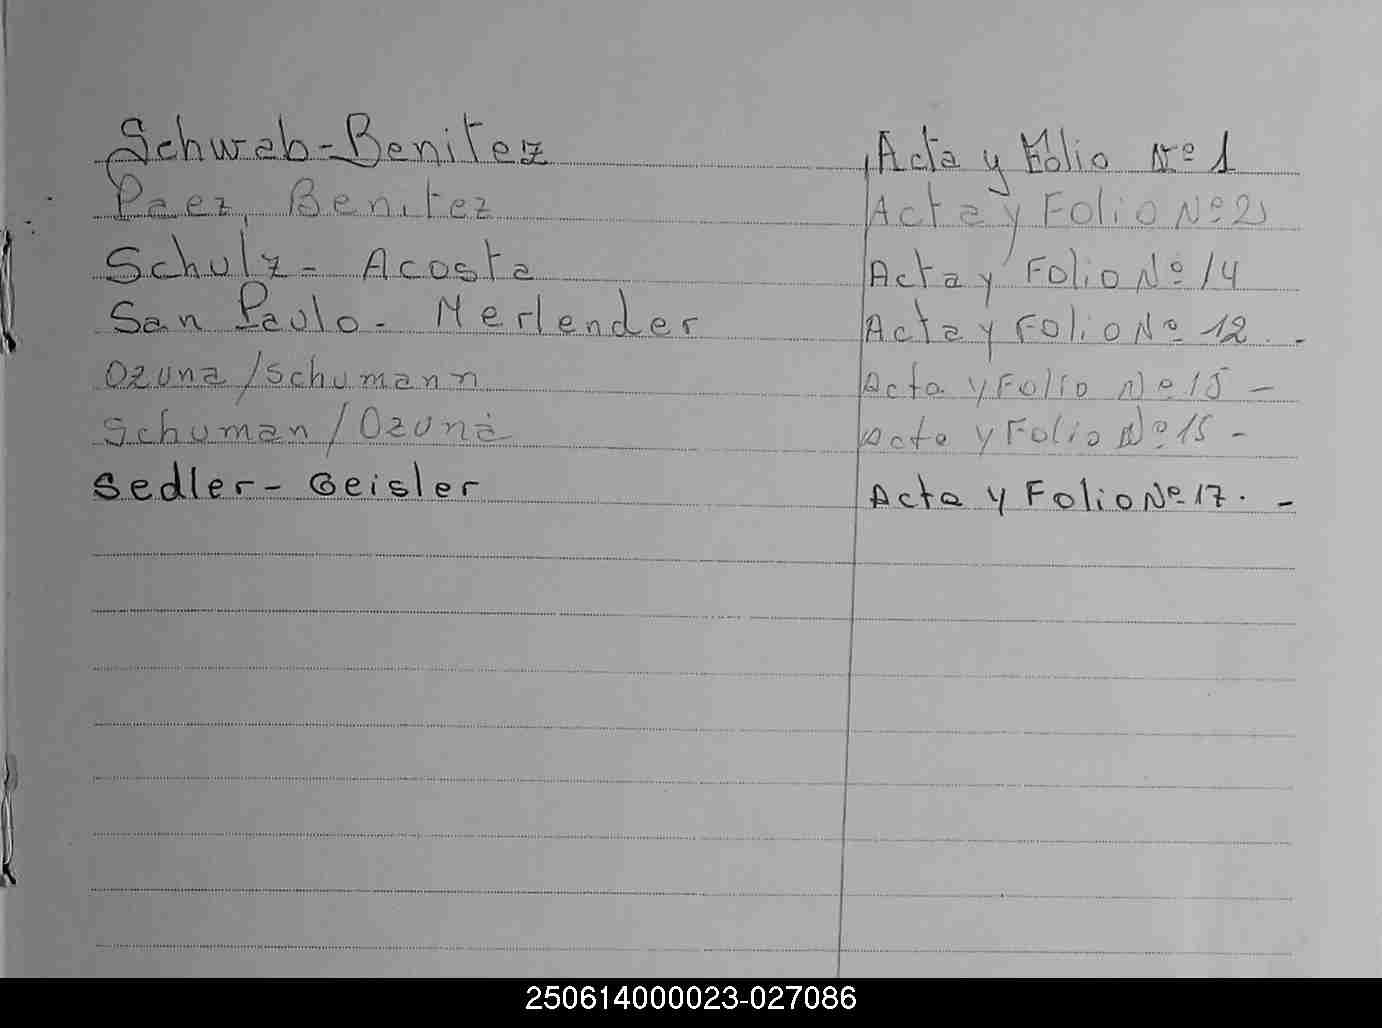 Schwab-Benitez Acta y Folio Nº 1
Paez, Benitez Acta y Folio Nº 2
Schulz - Acosta Acta y Folio Nº 14
San Paulo - Merlender Acta y Folio Nº 12. -
Ozuna / Schumann Acta y Folio Nº 15 -
Schuman / Ozuna Acta y Folio Nº 15 -
Sedler - Geisler Acta y Folio Nº 17. -
250614000023-027086